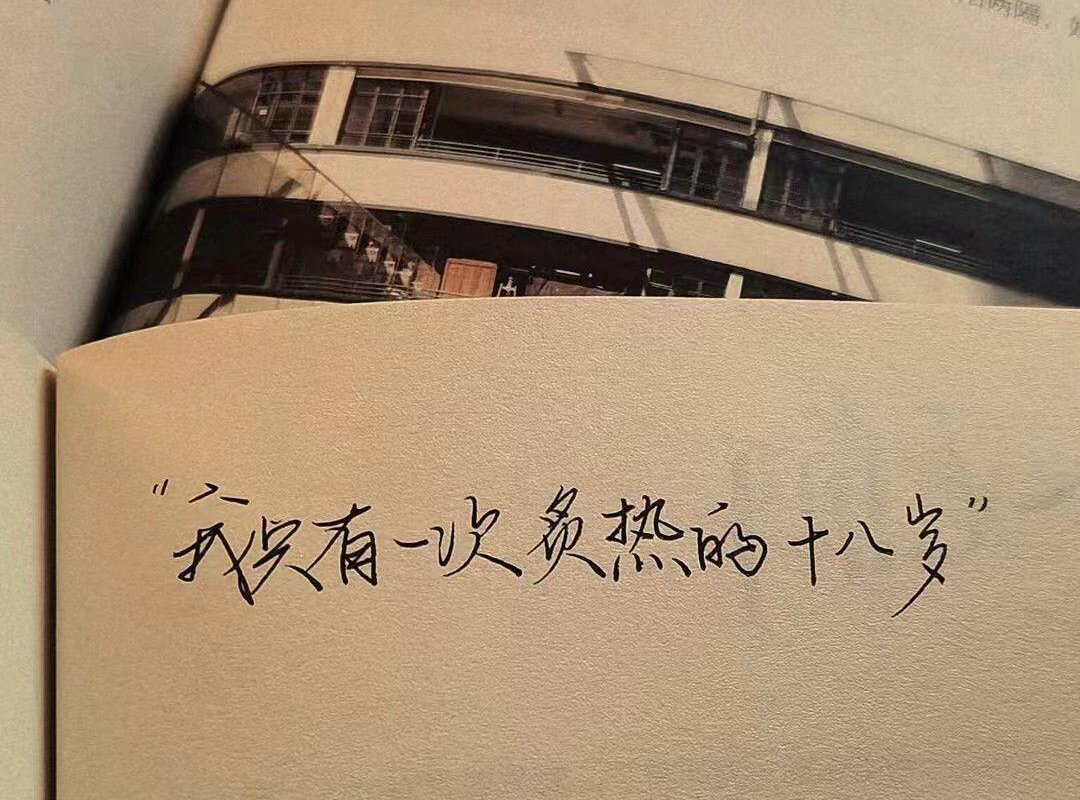 “我只有一次炙热的十八岁”